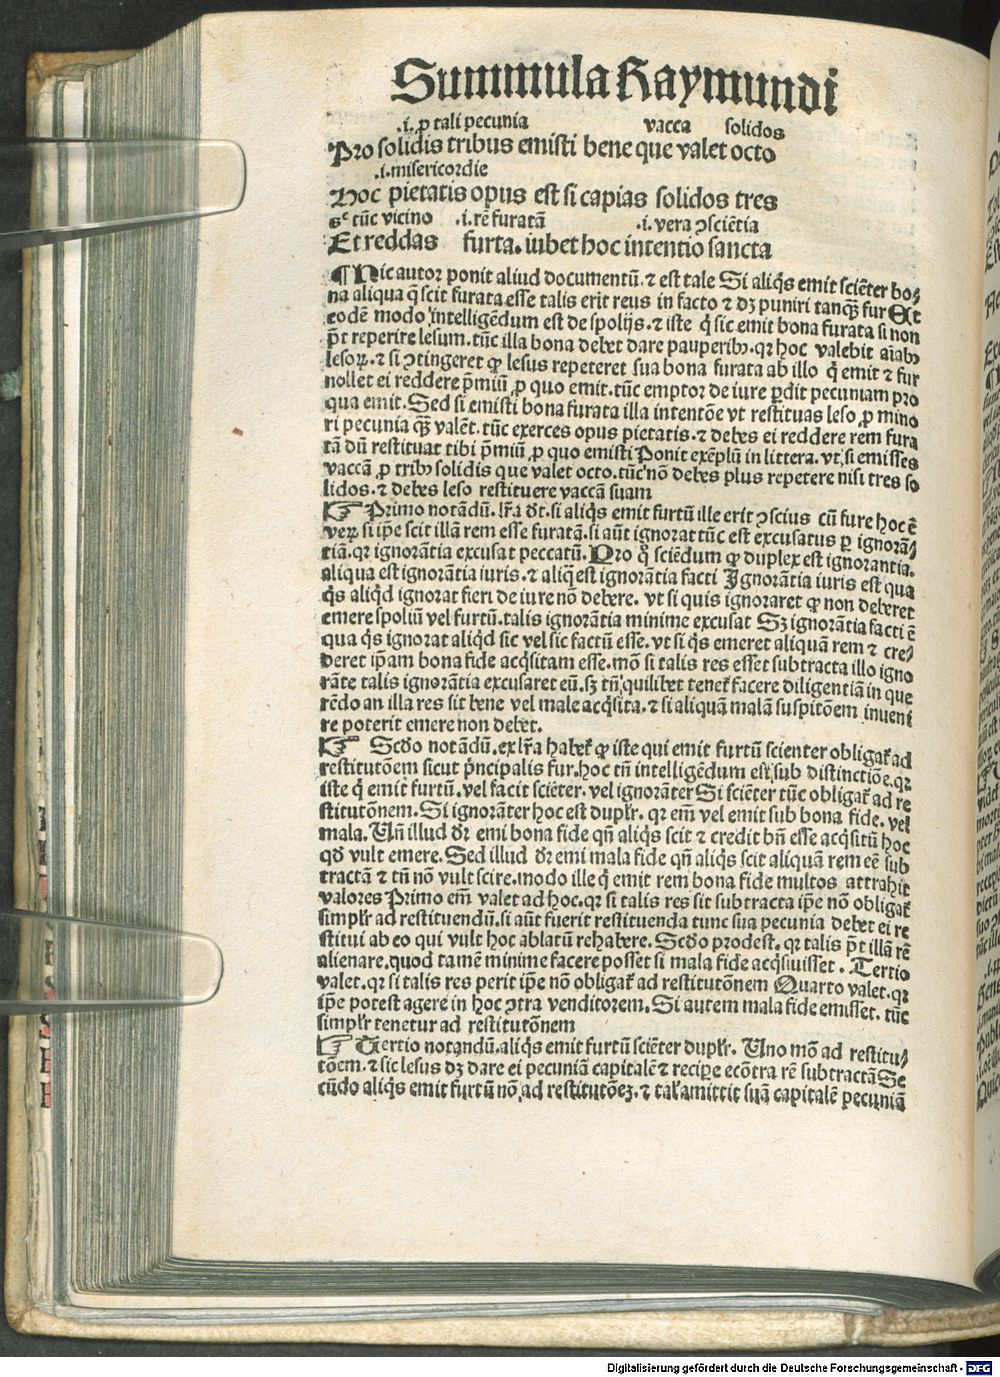 Summula Raymundi
.i. ꝓ tali pecunia vacca solidos
Pro solidis tribus emisti bene que valet octo
.i. misericordie
Hoc pietatis opus est si capias solidos tres
sꝫ tūc vicino .i. rē furatā .i. vera ꝯsciētia
Et reddas furta. iubet hoc intentio sancta
¶ Hic autor ponit aliud documentū. ⁊ est tale Si aliq̇s emit sciēter bo⸗
na aliqua q̄ scit furata esse talis erit reus in facto ⁊ dꝫ puniri tanq̄ꝫ fur Et
eodē modo intelligēdum est de spolijs. ⁊ iste q̇ sic emit bona furata si non
pōt reperire lesum. tūc illa bona debet dare pauperibꝰ. qꝛ hoc valebit aīabꝰ
lesoꝝ. ⁊ si ꝯtingeret ꝙ lesus repeteret sua bona furata ab illo q̇ emit ⁊ fur
nollet ei reddere p̄miū ꝓ quo emit. tūc emptor de iure ꝑdit pecuniam pro
qua emit. Sed si emisti bona furata illa intentōe vt restituas leso ꝓ mino
ri pecunia q̄ꝫ valēt. tūc exerces opus pietatis. ⁊ debes ei reddere rem fura
tā dū restituat tibi p̄miū ꝓ quo emisti Ponit exēplū in littera. vt si emisses
vaccā ꝓ tribꝰ solidis que valet octo. tūc nō debes plus repetere nisi tres so
lidos. ⁊ debes leso restituere vaccā suam
☞ Primo notādū. lr̄a dt̄. si aliq̇s emit furtū ille erit ꝯscius cū fure hoc ē
veꝝ si ip̄e scit illā rem esse furatā. si aūt ignorat tūc est excusatus ꝑ ignorā⸗
tiā. qꝛ ignorātia excusat peccatū. Pro q̇ sciēdum ꝙ duplex est ignorantia.
aliqua est ignorātia iuris. ⁊ aliq̄ est ignorātia facti Ignorātia iuris est qua
q̇s aliq̇d ignorat fieri de iure nō debere. vt si quis ignoraret ꝙ non deberet
emere spoliū vel furtū. talis ignorātia minime excusat Sꝫ ignorātia facti ē
qua q̇s ignorat aliq̇d sic vel sic factū esse. vt si q̇s emeret aliquā rem ⁊ cre⸗
deret ip̄am bona fide acq̇sitam esse. mō si talis res esset subtracta illo igno
rāte talis ignorātia excusaret eū. sꝫ tn̄ quilibet tenet̄ facere diligentiā in que
rēdo an illa res sit bene vel male acq̇sita. ⁊ si aliquā malā suspitōem inueni
re poterit emere non debet.
☞ Scd̄o notādū. ex lr̄a habet̄ ꝙ iste qui emit furtū scienter obligat̄ ad
restitutōem sicut p̄ncipalis fur. hoc tn̄ intelligēdum est sub distinctiōe. qꝛ
iste q̇ emit furtū. vel facit sciēter. vel ignorāter Si sciēter tūc obligat̄ ad re
stitutōnem. Si ignorāter hoc est duplr̄. qꝛ em̄ vel emit sub bona fide. vel
mala. Un̄ illud dr̄ emi bona fide qn̄ aliq̇s scit ⁊ credit bn̄ esse acq̇sitū hoc
qd̄ vult emere. Sed illud dr̄ emi mala fide qn̄ aliq̇s scit aliquā rem eē sub
tractā ⁊ tn̄ nō vult scire. modo ille q̇ emit rem bona fide multos attrahit
valores Primo em̄ valet ad hoc. qꝛ si talis res sit subtracta ip̄e nō obligat̄
simplr̄ ad restituendū. si aūt fuerit restituenda tunc sua pecunia debet ei re
stitui ab eo qui vult hoc ablatū rehabere. Scd̄o prodest. qꝛ talis pōt illā rē
alienare. quod tamē minime facere posset si mala fide acq̇siuisset. Tertio
valet. qꝛ si talis res perit ip̄e nō obligat̄ ad restitutōnem Quarto valet. qꝛ
ip̄e potest agere in hoc ꝯtra venditorem. Si autem mala fide emisset. tūc
simplr̄ tenetur ad restitutōnem
☞ Tertio notandū. aliq̇s emit furtū sciēter duplr̄. Uno mō ad restitu⸗
tōem. ⁊ sic lesus dꝫ dare ei pecuniā capitalē ⁊ recipe ecōtra rē subtractā Se
cūdo aliq̇s emit furtū nō ad restitutōeꝫ. ⁊ tal' amittit suā capitalē pecuniā
Digitalisierung gefördert durch die Deutsche Forschungsgemeinschaft - DFG